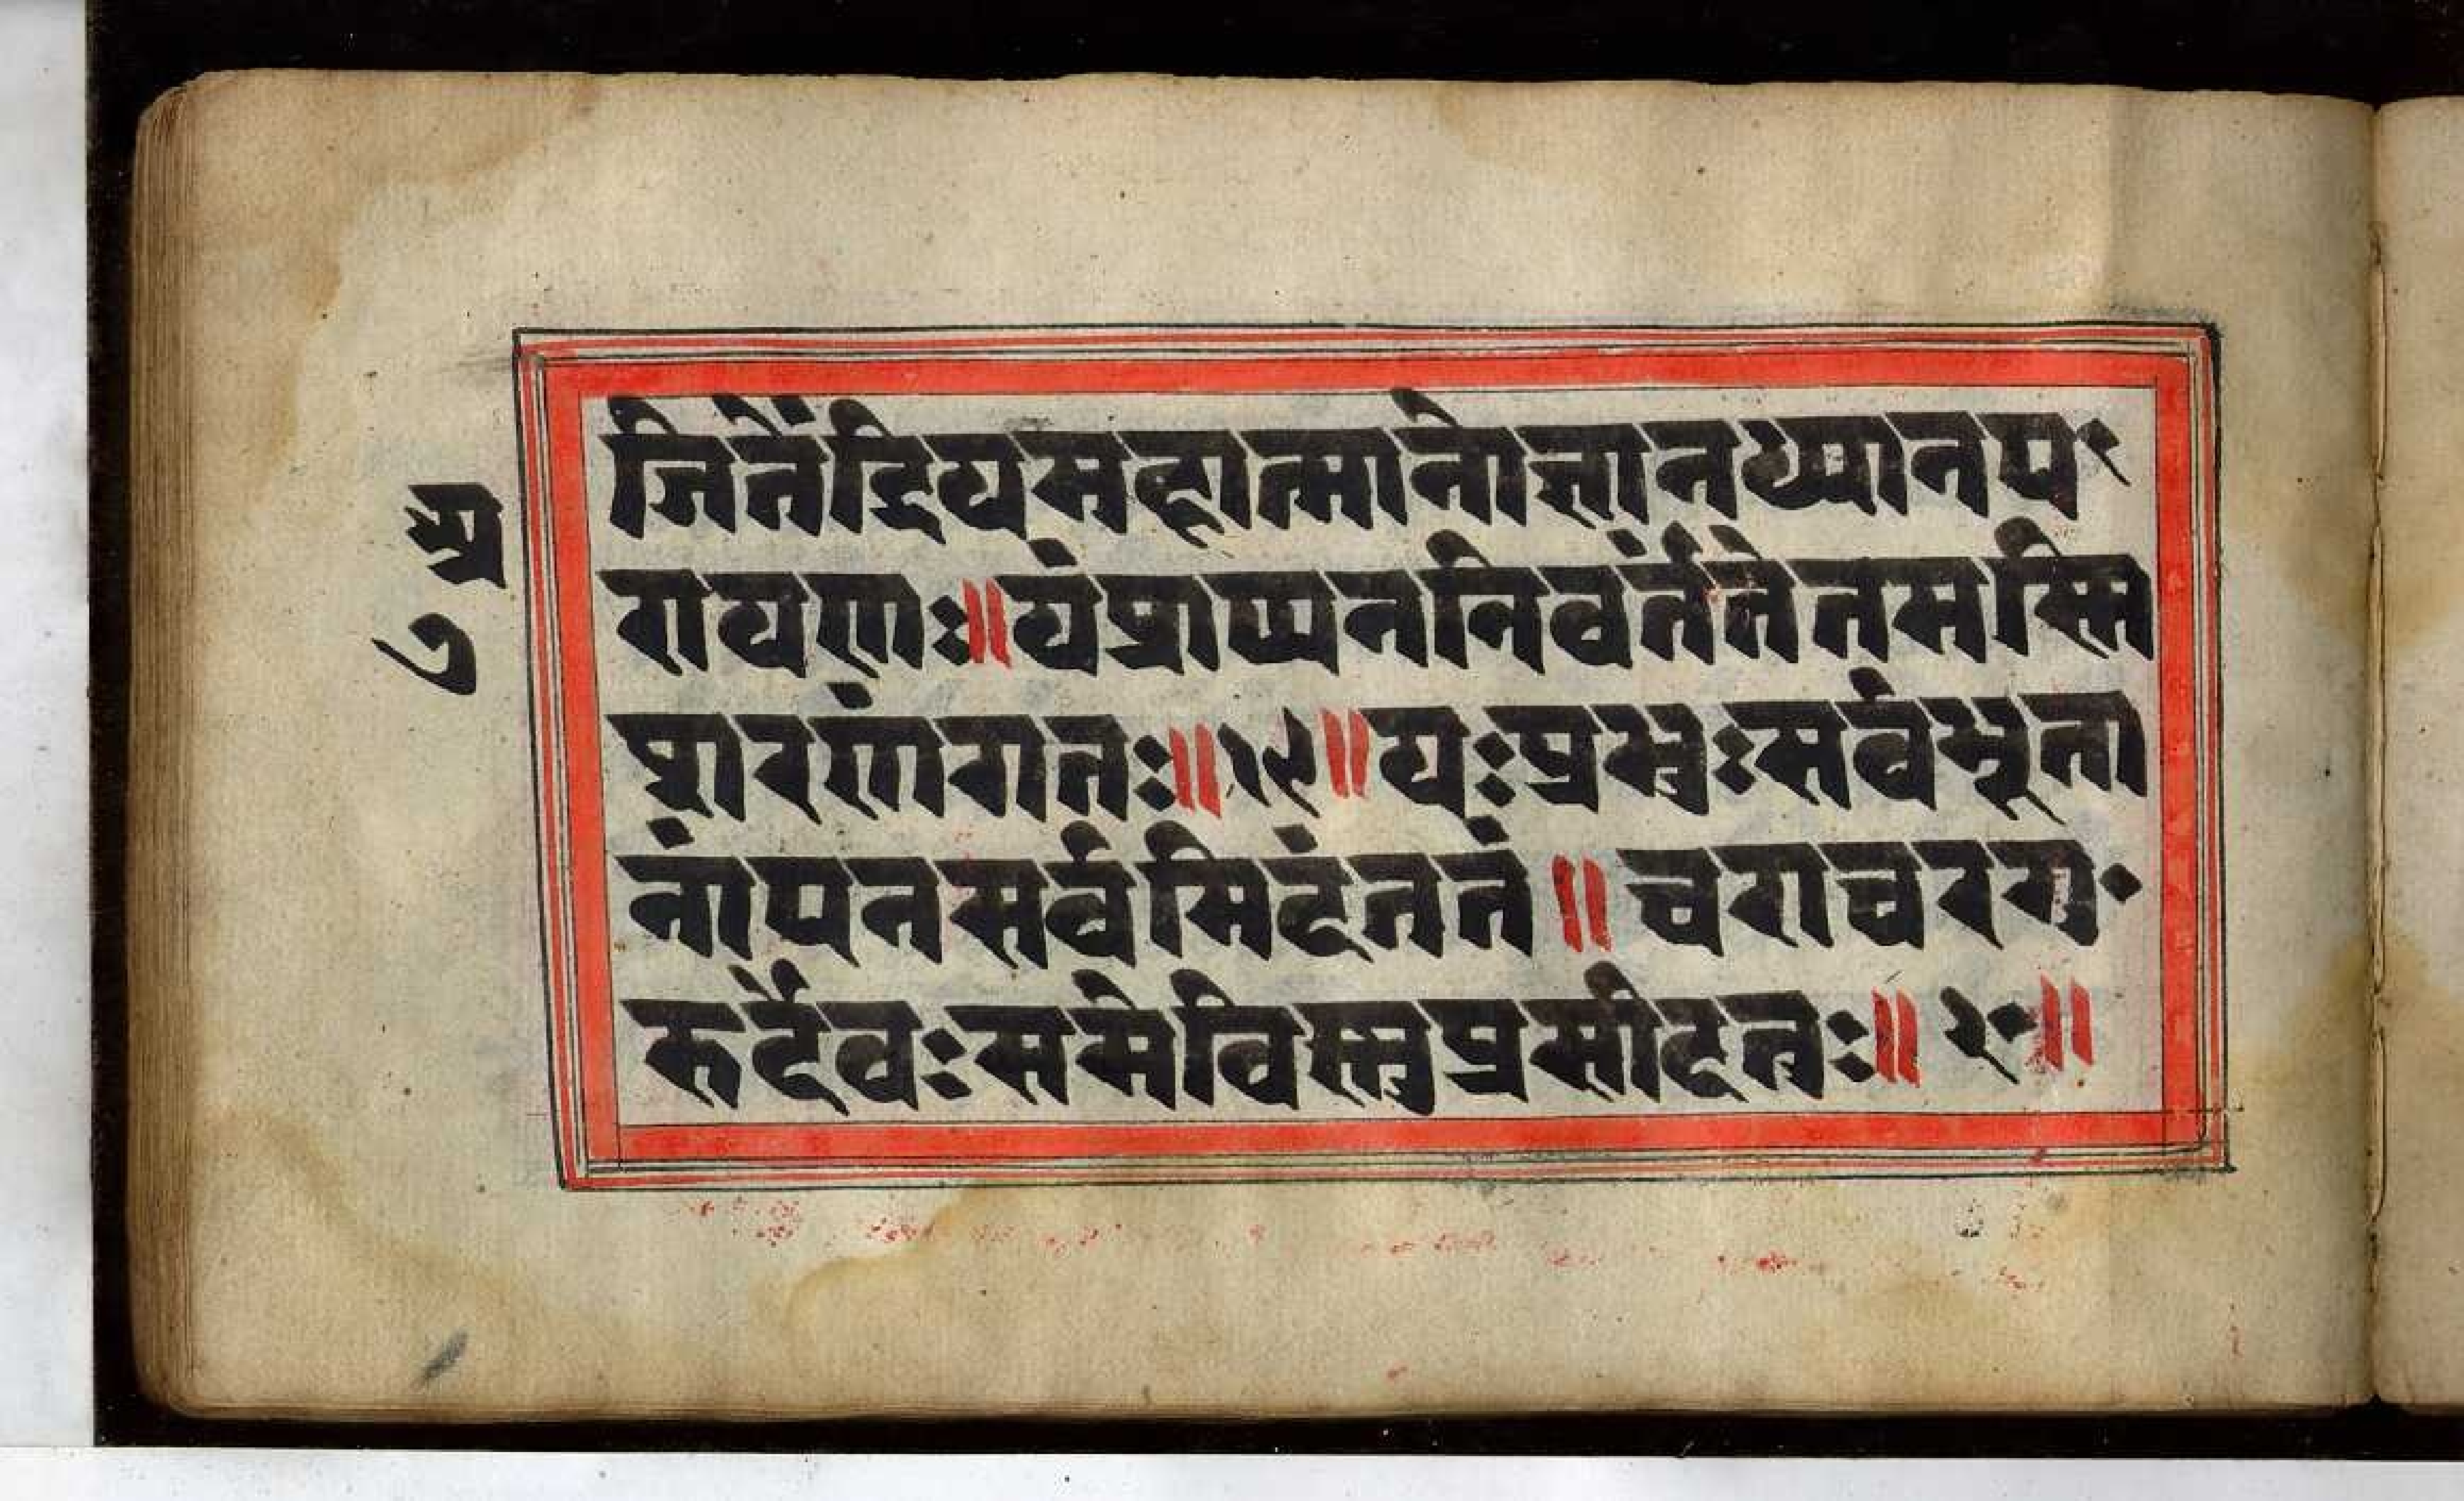 जितेंद्रियमहात्मानोज्ञानध्यानप
प्र
रायणः॥यंप्राप्यननिवर्तंतेतमस्मि
७
शरणंगतः॥१९॥यःप्रभुःसर्वभूता
नांयेनसर्वमिदंततं॥चराचरगु
रुर्देवःसमेविस्नुप्रसीदतुः॥२०॥